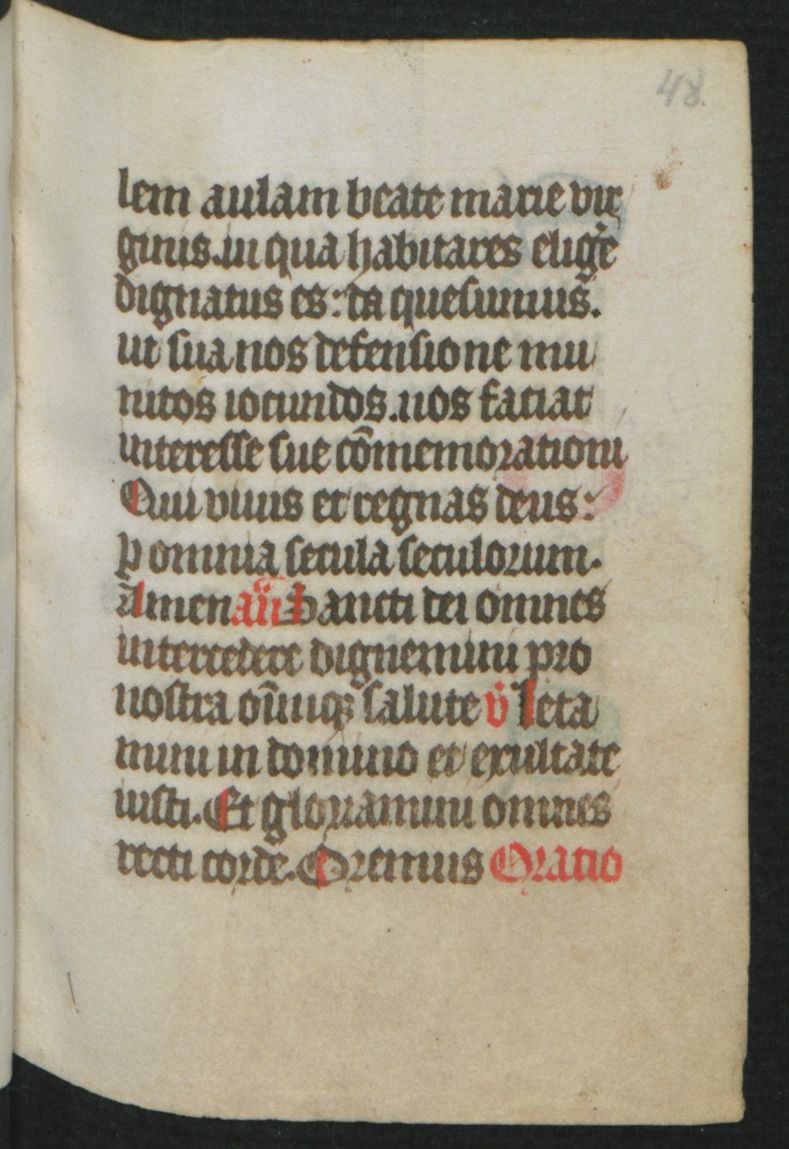 48
lem aulam beate marie vir
ginis. in qua habitares elige᷒
dignatus es: da quesumus̄.
ut sua nos defensione mu
nitos iocundos. nos faciat
interesse sue cōmemorationi
Qui vivis et regnas deus:
ꝑ omnia secula seculorum.
Amen an̄ Sancti dei omnes
intercedere dignemini pro
nostra om̄iuqꝫ salute v̇ leta
mini in domino et exultate
iusti. Et gloriamini omnes
recti corde. Oremus Oratio